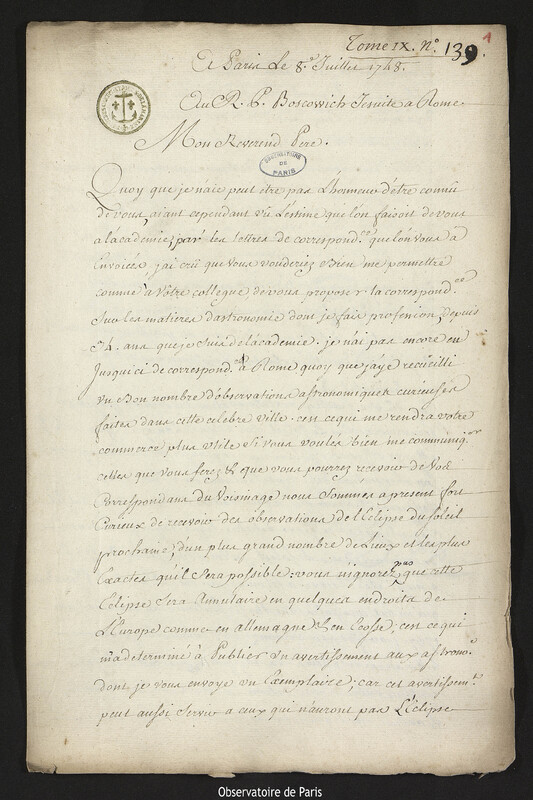 Tome IX. N.° 139
1
A Paris Le 8.e Juillet 1748.
Au R. P. Boscowich Jesuite a Rome.
Mon Reverend Pere.
OBSERVATOIRE
DE
PARIS
Quoy que je n'aie peut etre pas L'honneur d'etre connu
de vous, aiant cependant vû L'estime que l'on faisoit de vous
a l'academie, par les lettres de correspond.ce que l'on vous a
Envoiées, j'ai crû que vous voudriez Bien me permettre
comme a vôtre collegue, de vous proposer la correspond.ce
Sur les matieres d'astronomie dont je fais profession, depuis
34. ans que je suis de l'academie. je n'ai pas encore eu
Jusqu'ici de correspond.ce à Rome quoy que j'aye recueilli
un Bon nombre d'observations astronomiques curieuses
faites dans cette celebre Ville. c'est ce qui me rendra votre
commerce plus utile Si vous voulés bien me communiq.er
celles que vous ferez & que vous pourrez recevoir de Vos
Correspondans du Voisinage nous Sommes a present fort
Curieux de recevoir des observations de l'Eclipse du Soleil
prochaine, d'un plus grand nombre de Lieux et les plus
Exactes qu'il Sera possible: vous n'ignorez pas que cette
Eclipse Sera Annulaire en quelques endroits de
L'Europe comme en allemagne & en Ecosse; c'est ce qui
m'a determiné à Publier un avertissement aux astrono.es
dont je vous envoye un Exemplaire; car cet avertissem.t
peut aussi Servir a ceux qui n'auront pas L'Eclipse
Observatoire de Paris